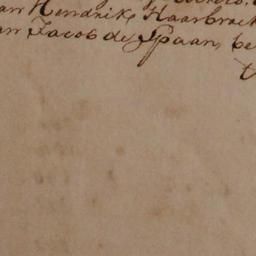 an Hendrik Haarbroek
an Jacob de Spaan, be